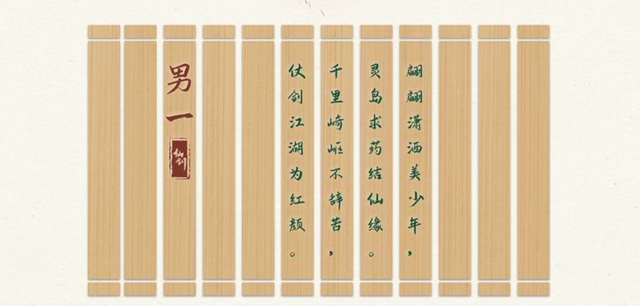 翩翩潇洒美少年,
灵岛求药结仙缘。
千里崎岖不辞苦,
仗剑江湖为红颜。
男一
仙剑